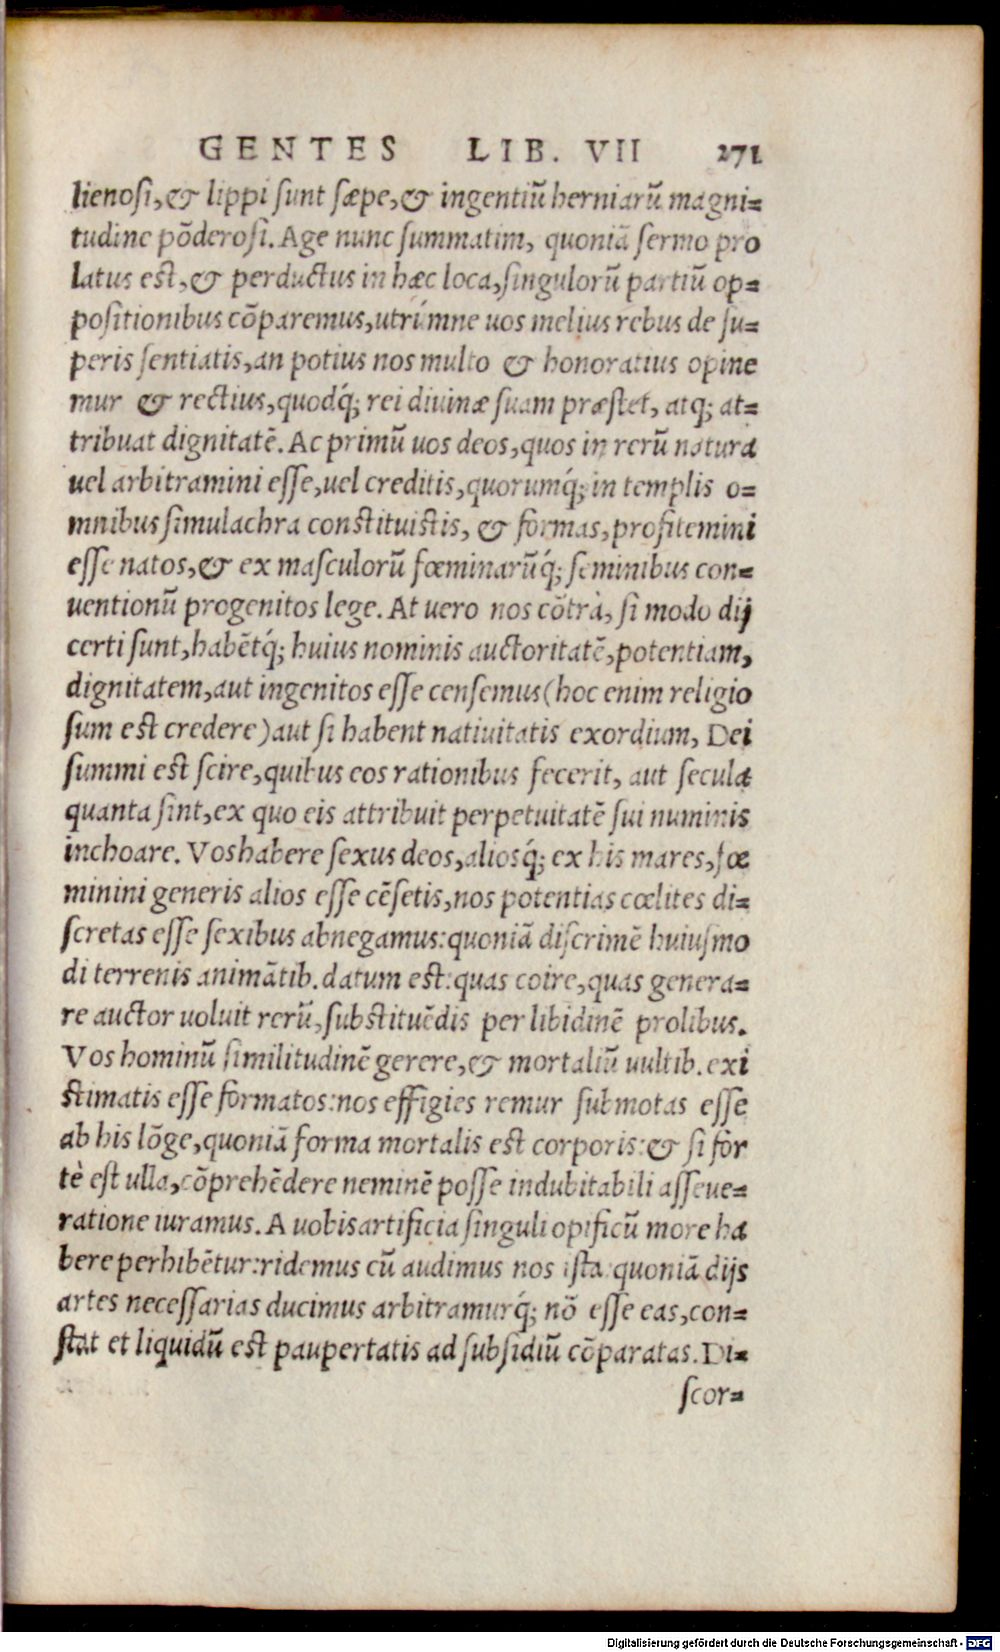 GENTES LIB. VII 271
lienosi, & lippi sunt sæpe, & ingentiū herniarū magni-
tudine pōderosi. Age nunc summatim, quoniā sermo pro
latus est, & perductus in hæc loca, singulorū partiū op-
positionibus cōparemus, utrúmne uos melius rebus de su-
peris sentiatis, an potius nos multo & honoratius opine
mur & rectius, quodq́; rei diuinæ suam præstet, atq; at-
tribuat dignitatē. Ac primū uos deos, quos in rerū natura
uel arbitramini esse, uel creditis, quorumq́; in templis o-
mnibus simulachra constituistis, & formas, profitemini
esse natos, & ex masculorū fœminarūq́; seminibus con-
uentionū progenitos lege. At vero nos cōtrà, si modo dij
certi sunt, habētq́; huius nominis auctoritatē, potentiam,
dignitatem, aut ingenitos esse censemus (hoc enim religio
sum est credere) aut si habent natiuitatis exordium, Dei
summi est scire, quibus eos rationibus fecerit, aut secula
quanta sint, ex quo eis attribuit perpetuitatē sui numinis
inchoare. Vos habere sexus deos, aliosq́; ex his mares, fœ
minini generis alios esse cēsetis, nos potentias cœlites di-
scretas esse sexibus abnegamus: quoniā discrimē huiusmo
di terrenis animātib. datum est: quas coire, quas genera-
re auctor uoluit rerū, substituēdis per libidinē prolibus.
Vos hominū similitudinē gerere, & mortaliū uultib. exi
stimatis esse formatos: nos effigies remur submotas esse
ab his lōge, quoniā forma mortalis est corporis: & si for
tè est ulla, cōprehēdere neminē posse indubitabili asseue-
ratione iuramus. A uobis artificia singuli opificū more ha
bere perhibētur: ridemus cū audimus nos ista: quoniā dijs
artes necessarias ducimus arbitramurq́; nō esse eas, con-
stat et liquidū est paupertatis ad subsidiū cōparatas. Di-
scor-
Digitalisierung gefördert durch die Deutsche Forschungsgemeinschaft - DFG